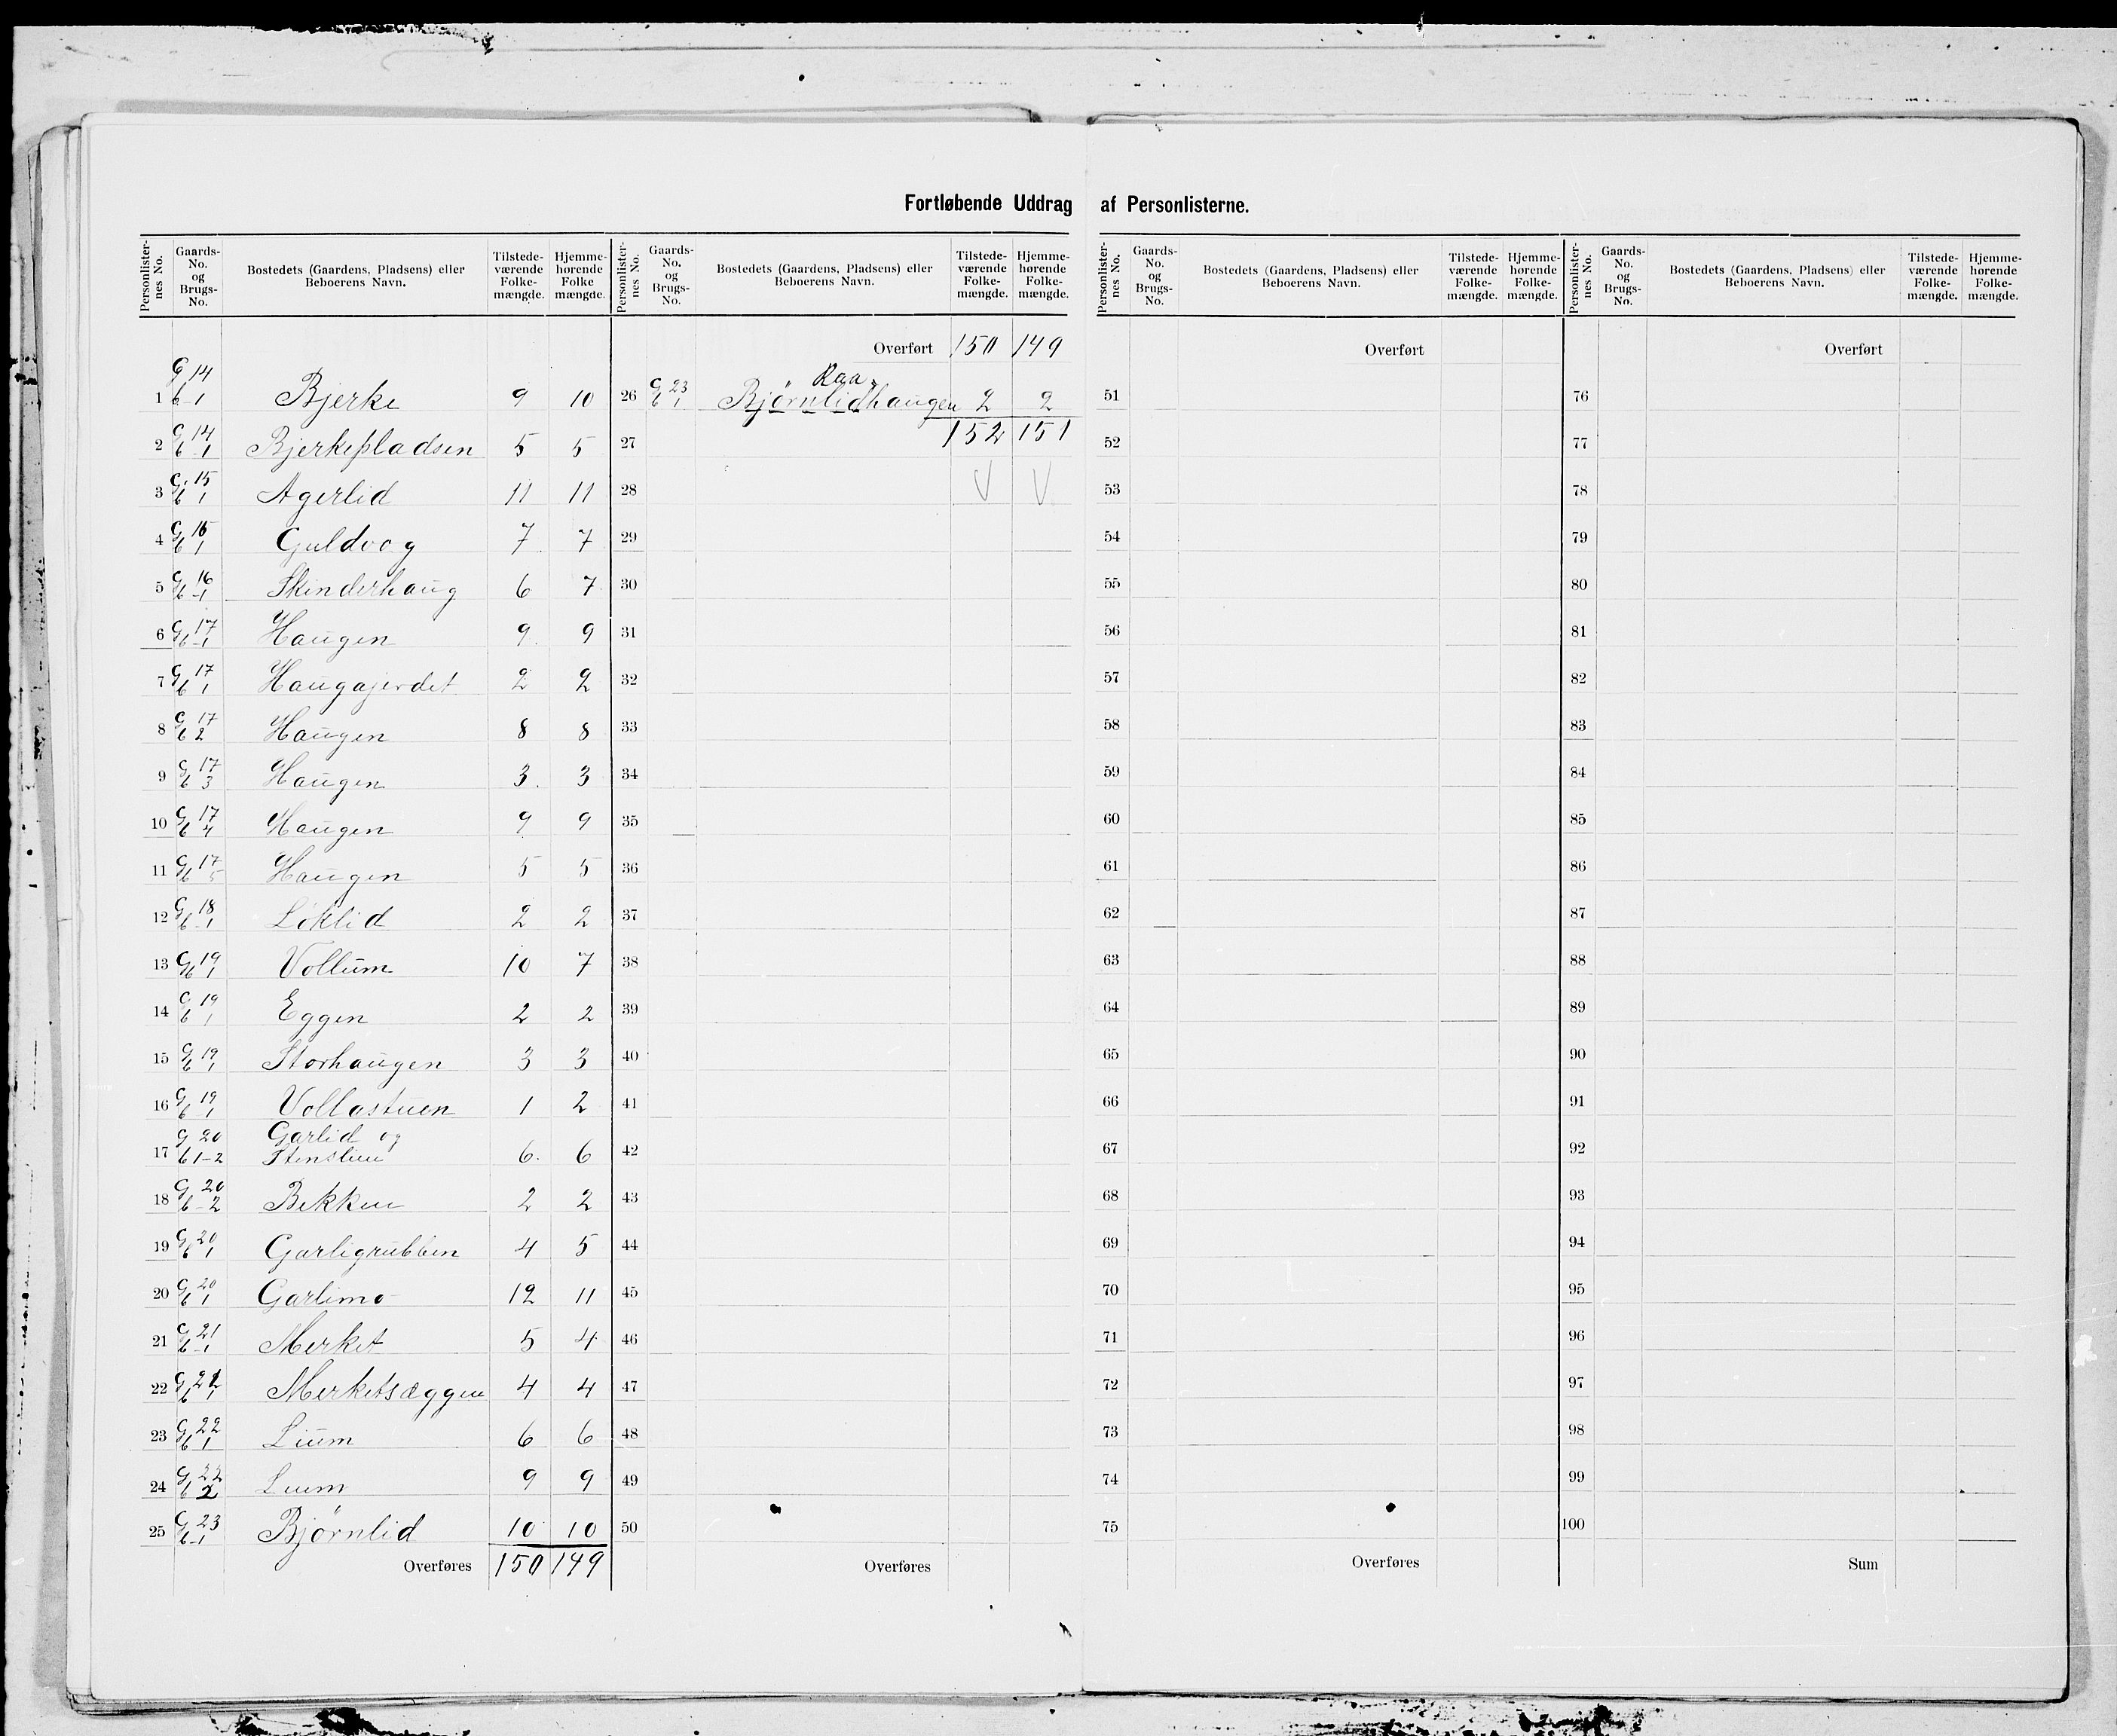 Fortløbende Uddrag af Personlisterne.
Personlister-nes No. Gaards-No. og Brugs-No. Bostedets (Gaardens, Pladsens) eller Beboerens Navn. Tilstede-værende Folke-mængde. Hjemme-hørende Folke mængde.
1 G 14 b 1 Bjerke 9 10
2 G 14 b 1 Bjerkepladsen 5 5
3 G 15 b 1 Agerlid 11 11
4 G 16 b 1 Guldvog 7 7
5 G 16 b 1 Skinderhaug 6 7
6 G 17 b 1 Haugen 9 9
7 G 17 b 1 Haugajerdet 2 2
8 G 17 b 2 Haugen 8 8
9 G 17 b 3 Haugen 3 3
10 G 17 b 4 Haugen 9 9
11 G 17 b 5 Haugen 5 5
12 G 18 b 1 Løklid 2 2
13 G 19 b 1 Vollum 10 7
14 G 19 b 1 Eggen 2 2
15 G 19 b 1 Storhaugen 3 3
16 G 19 b 1 Vollastuen 1 2
17 G 20 b 1-2 Garlid og Stenslien 6 6
18 G 20 b 2 Bekken 2 2
19 G 20 b 1 Garligrubben 4 5
20 G 20 b 1 Garlimo 12 11
21 G 21 b 1 Merket 5 4
22 G 21 b 1 Merketsæggen 4 4
23 G 22 b 1 Lium 6 6
24 G 22 b 2 Lium 9 9
25 G 23 b 1 Bjørnlid 10 10
Overføres 150 149
Personlister-nes No. Gaards-No. og Brugs-No. Bostedets (Gaardens, Pladsens) eller Beboerens Navn. Tilstede-værende Folke-mængde. Hjemme-hørende Folke-mængde.
Overført 150 149
Raa
26 G 23 b 1 Bjørnlidhaugen 2 2
27 152 151
28 V V
29
30
31
32
33
34
35
36
37
38
39
40
41
42
43
44
45
46
47
48
49
50
Overføres
Personlister-nes No. Gaards-No. og Brugs-No. Bostedets (Gaardens, Pladsens) eller Beboerens Navn. Tilstede-værende Folke-mængde. Hjemme-hørende Folke-mængde.
Overført
51
52
53
54
55
56
57
58
59
60
61
62
63
64
65
66
67
68
69
70
71
72
73
74
75
Overføres
Personlister-nes No. Gaards-No. og Brugs-No. Bostedets (Gaardens, Pladsens) eller Beboerens Navn. Tilstede-værende Folke-mængde. Hjemme-hørende Folke-mængde.
Overført
76
77
78
79
80
81
82
83
84
85
86
87
88
89
90
91
92
93
94
95
96
97
98
99
100
Sum